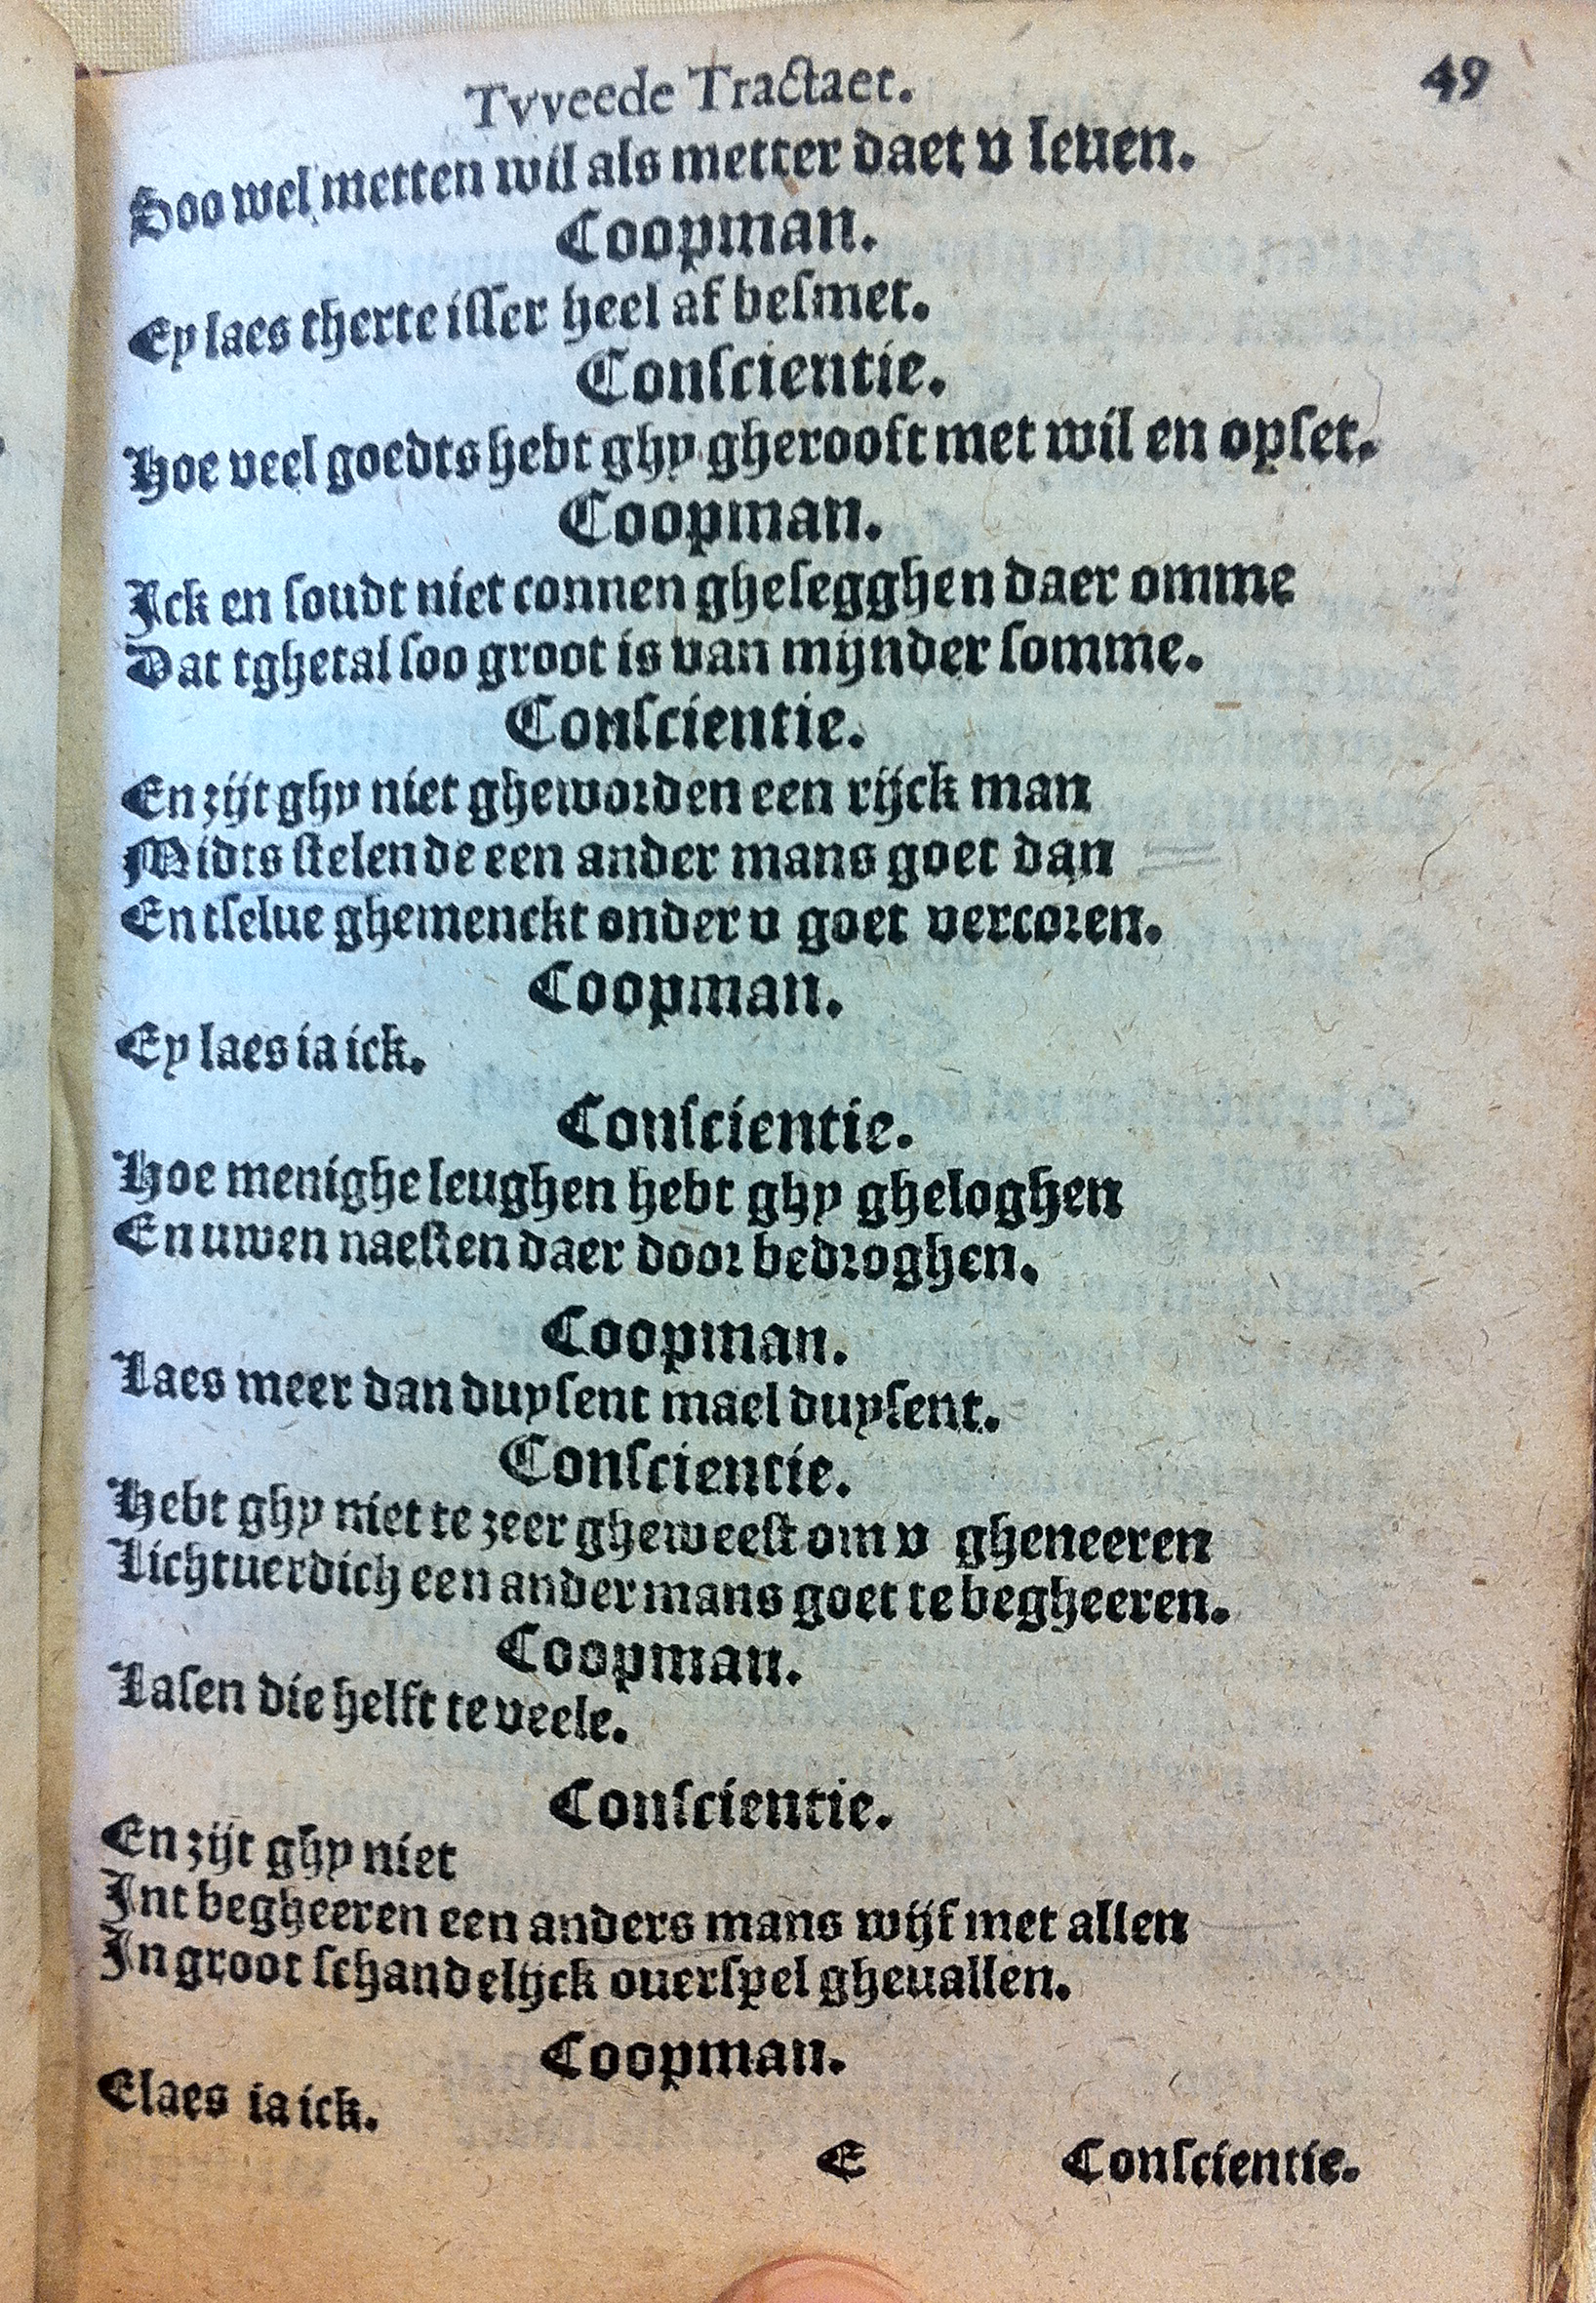 Tvveede Tractaet. 49
Soo wel metten wil als metter daet v leuen.
Coopman.
Ey laes therte isser heel af besmet.
Conscientie.
Hoe veel goedts hebt ghy gherooft met wil en opset.
Coopman.
Ick en soudt niet connen ghesegghen daer omme
Dat tghetal soo groot is van mijnder somme.
Conscientie.
En zijt ghy niet gheworden een rijck man
Midts stelende een ander mans goet dan
En tselue ghemenckt onder v goet vercoren.
Coopman.
Ey laes ia ick.
Conscientie.
Hoe menighe leughen hebt ghy gheloghen
En uwen naesten daer door bedroghen.
Coopman.
Laes meer dan duysent mael duysent.
Conscientie.
Hebt ghy niet te zeer gheweest om v gheneeren
Lichtuerdich een ander mans goet te begheeren.
Coopman.
Lasen die helft te veele.
Conscientie.
En zijt ghy niet
Int begheeren een anders mans wijf met allen
In groot schandelijck ouerspel gheuallen.
Coopman.
Elaes ia ick.
E Conscientie.